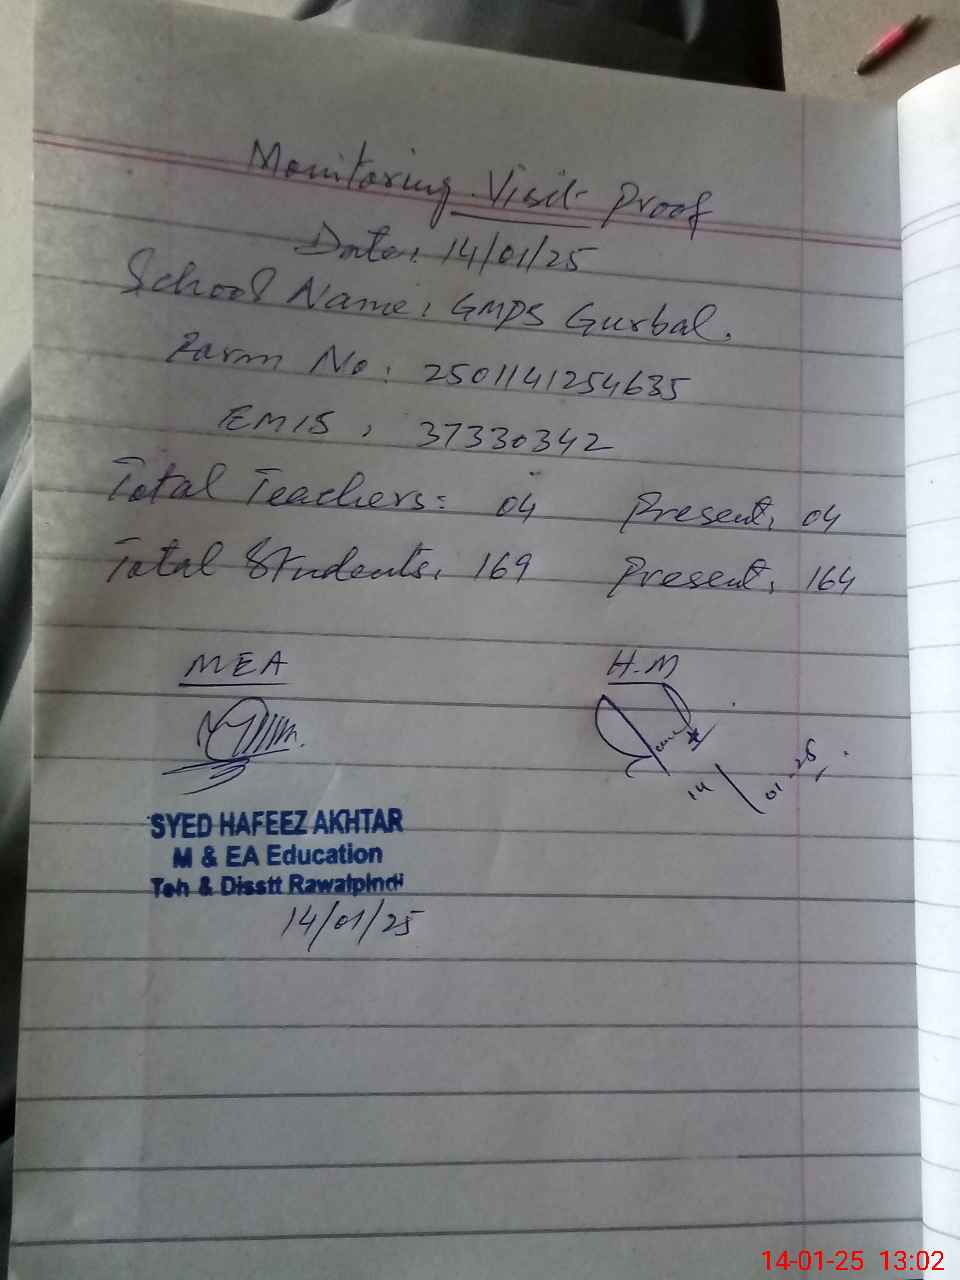 Monitoring Visit Proof
Date: 14/01/25
School Name: GMPS Gurbal.
Farm No: 2501141254635
EMIS: 37330342
Total Teachers: 04 Present: 04
Total Students: 169 Present: 164
MEA H.M
14/01-25
SYED HAFEEZ AKHTAR
M & EA Education
Teh & Disstt Rawalpindi
14/01/25
14-01-25 13:02